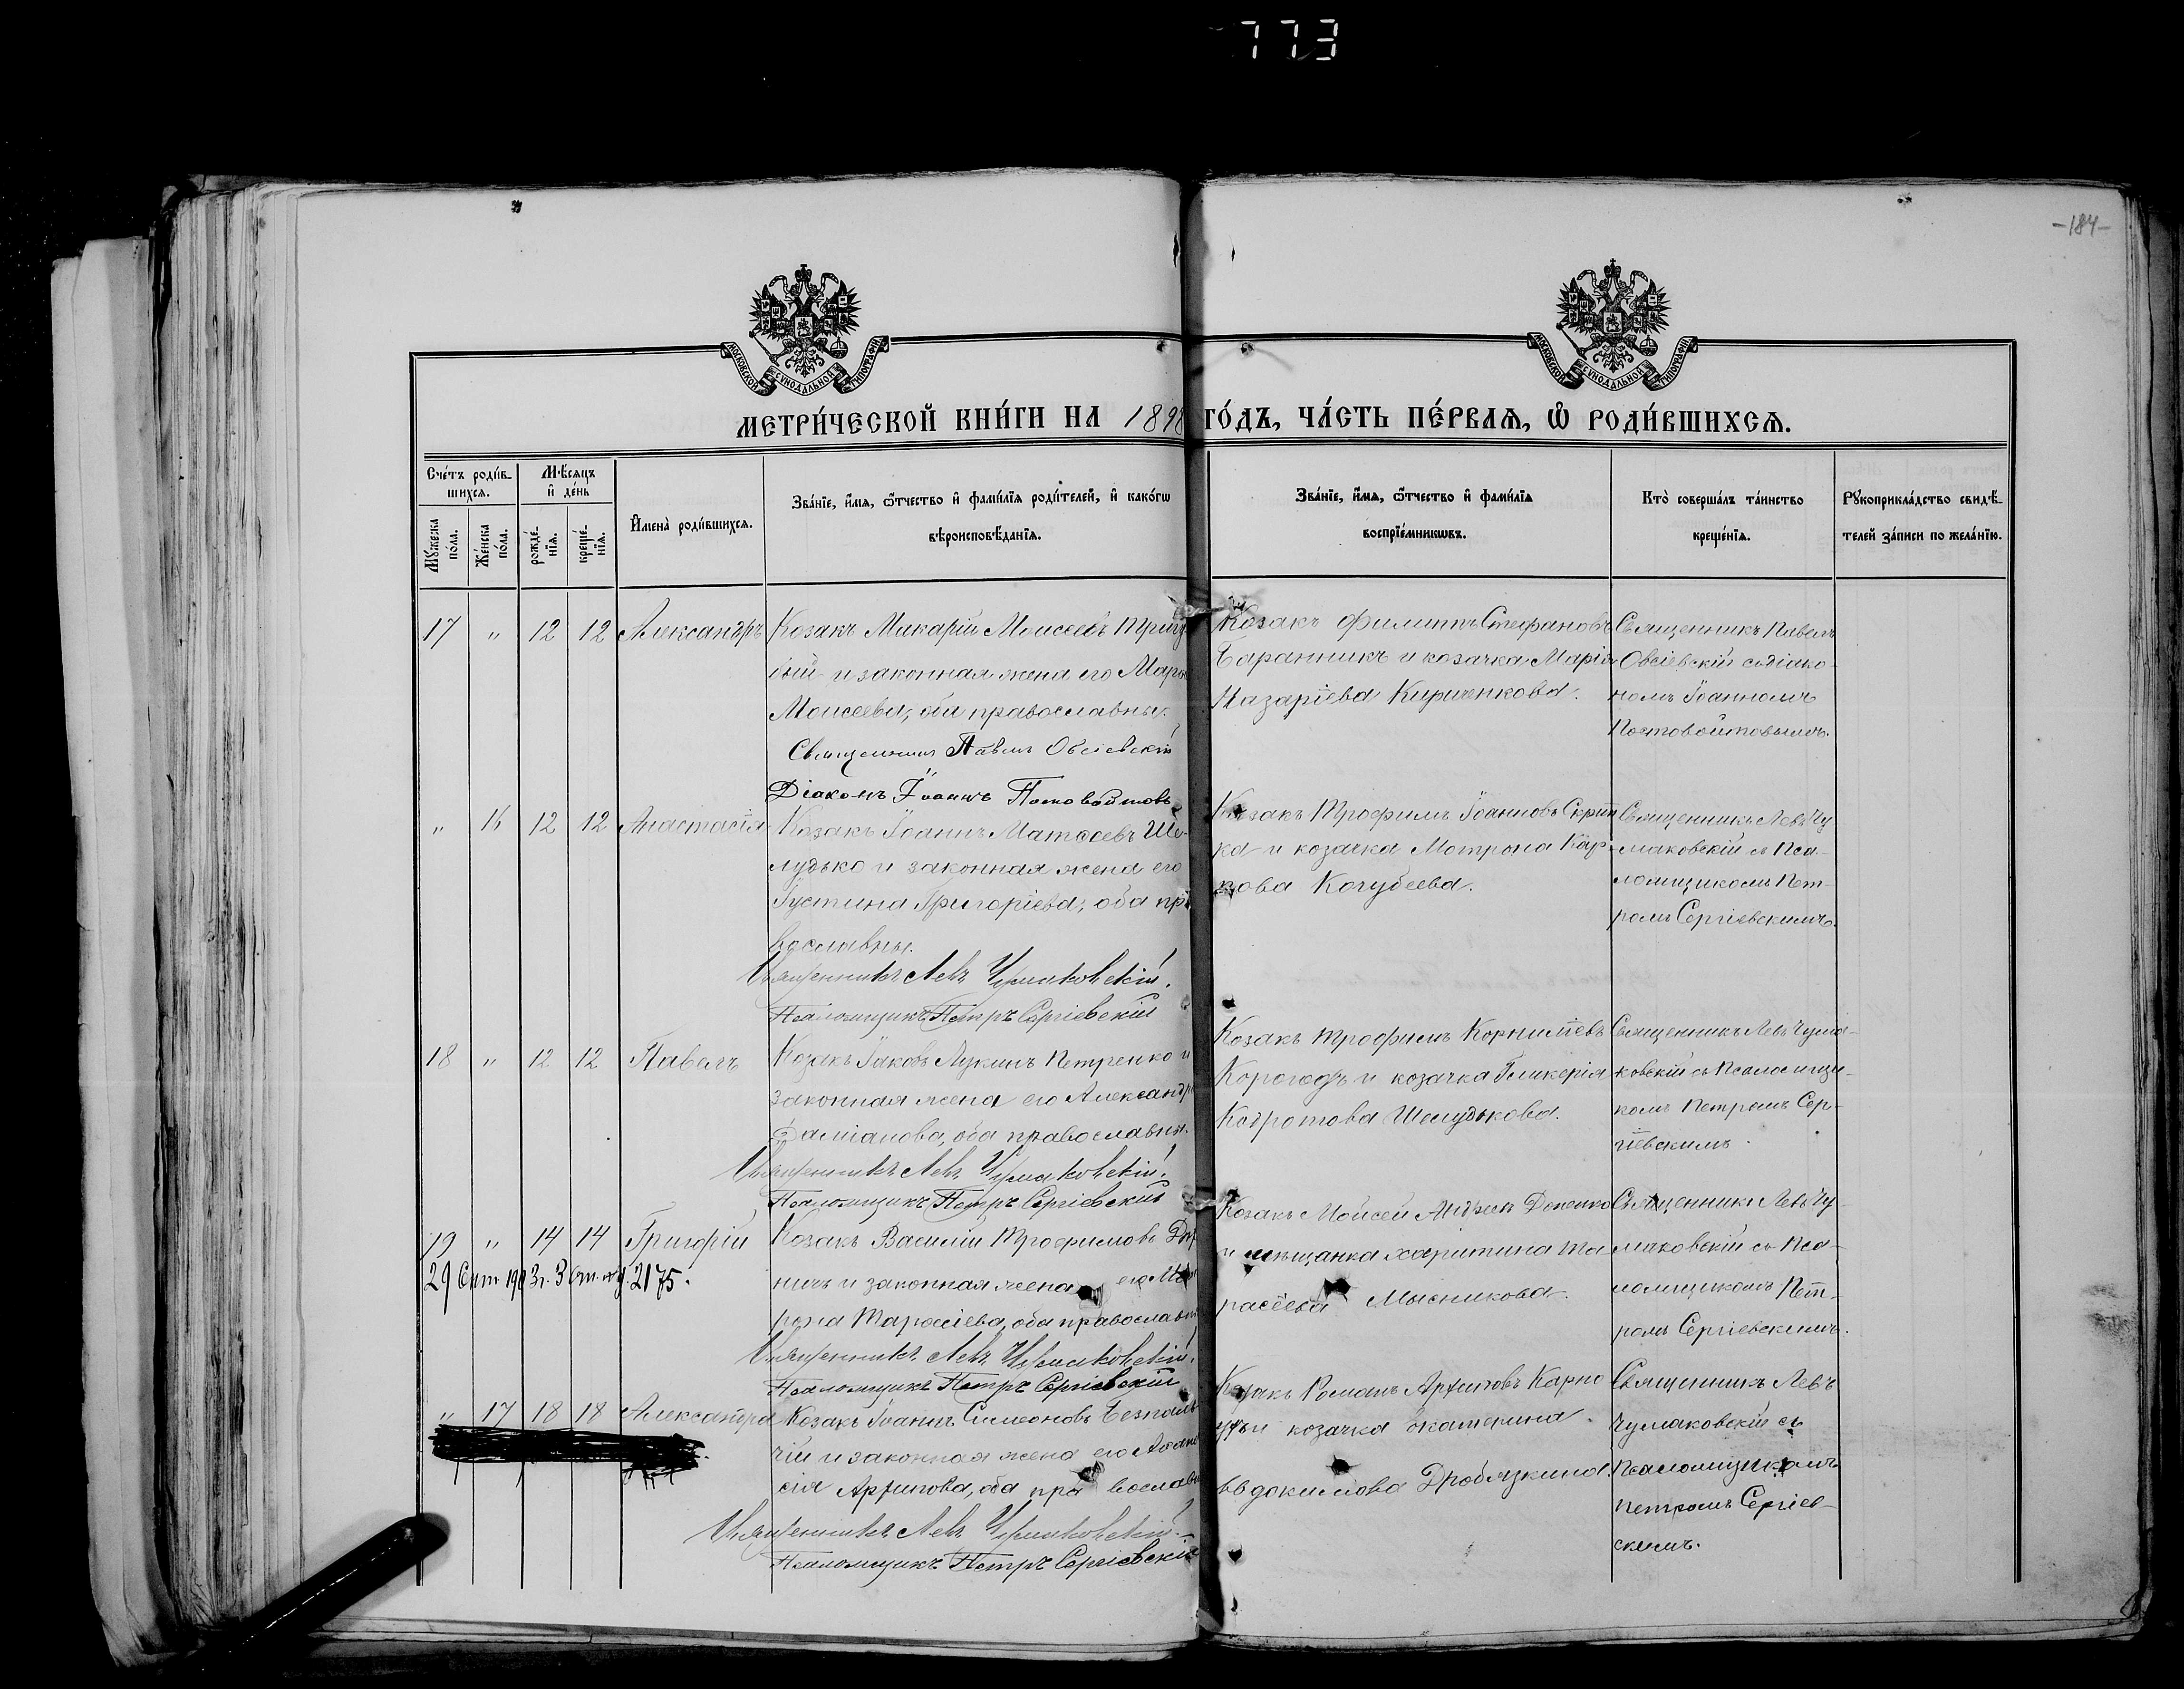 773
-184-
МОСКОВСКОЙ СѴНОДАЛЬНОЙ ТИПОГРАФІИ
МОСКОВСКОЙ СѴНОДАЛЬНОЙ ТИПОГРАФІИ
МЕТРИ́ЧЕСКОЙ КНИ́ГИ НА 1898 ГО́ДЪ, ЧА́СТЬ ПЕ́РВАѦ, Ѡ҆ РОДИ́ВШИХСѦ.
Сче́тъ роди́в-
шихсѧ.
Мꙋ́жеска по́ла.
Же́нска по́ла.
Мѣ́сѧцъ
и҆ де́нь
рожде́-
нїѧ.
креще́-
нїѧ.
И҆мена̀ роди́вшихсѧ.
Зва́нїе, и҆́мѧ, ѻ҆́тчество и҆ фами́лїѧ роди́телей, и҆ како́гѡ
вѣроисповѣ́данїѧ.
Зва́нїе, и҆́мѧ, ѻ҆́тчество и҆ фами́лїѧ
воспрїе́мникѡвъ.
Кто̀ соверша́лъ та́инство
креще́нїѧ.
Рꙋкоприкла́дство свидѣ́-
телей за́писи по жела́нїю.
17 " 12 12 Александръ
Козакъ Макарій Моисеевъ Тригу
бый и законная жена его
Моисеева, оба православны.
Священникъ Павелъ Овсіевскій
Діаконъ Іоаннъ Постовойтовъ
Козакъ Филиппъ Стефановъ
Баранникъ и козачка Марія
Назаріева Кириченкова.
Священникъ Павелъ
Овсіевскій съ діако-
номъ Іоанномъ
Постовойтовымъ.
" 16 12 12 Анастасія
Козакъ Іоаннъ Матѳеевъ Ше-
лудько и законная жена его
Іустина Григоріева, оба пра
вославны.
Священникъ Левъ Чумаковскій.
Псаломщикъ Петръ Сергіевскій
Козакъ Трофимъ Іоанновъ Скрип
ка и козачка Мотрона Кар-
пова Кочубеева.
Священникъ Левъ Чу
маковскій съ Пса-
ломщикомъ Пет-
ромъ Сергіевскимъ.
18 " 12 12 Павелъ
Козакъ Іаковъ Лукинъ Петренко и
законная жена его Александра
Даміанова, оба православны.
Священникъ Левъ Чумаковскій.
Псаломщикъ Петръ Сергіевскій
Козакъ Трофимъ Корниліевъ
Корогодъ и козачка Гликерія
Кодротова Шелудькова.
Священникъ Левъ Чума-
ковскій съ Псаломщи-
комъ Петромъ Сер-
гіевскимъ.
19 " 14 14 Григорій
2175.
Козакъ Василій Трофимовъ
ничъ и законная жена его
рона Тарасіева, оба православны
Священникъ Левъ Чумаковскій.
Псаломщикъ Петръ Сергіевскій
Козакъ Моисей
и мѣщанка Харитина Та
расіева Мысникова.
Священникъ Левъ Чу-
маковскій съ Пса-
ломщикомъ Пет-
ромъ Сергіевскимъ.
" 17 18 18 Александра
Козакъ Іоаннъ Симеоновъ Безпаль
чій и законная жена его Аѳана
сія Архипова, оба православны
Священникъ Левъ Чумаковскій.
Псаломщикъ Петръ Сергіевскій
Козакъ Романъ Архиповъ
козачка Екатерина
Евдокимова Дроблзкина.
Священникъ Левъ
Чумаковскій съ
Псаломщикомъ
Петромъ Сергіев-
скимъ.